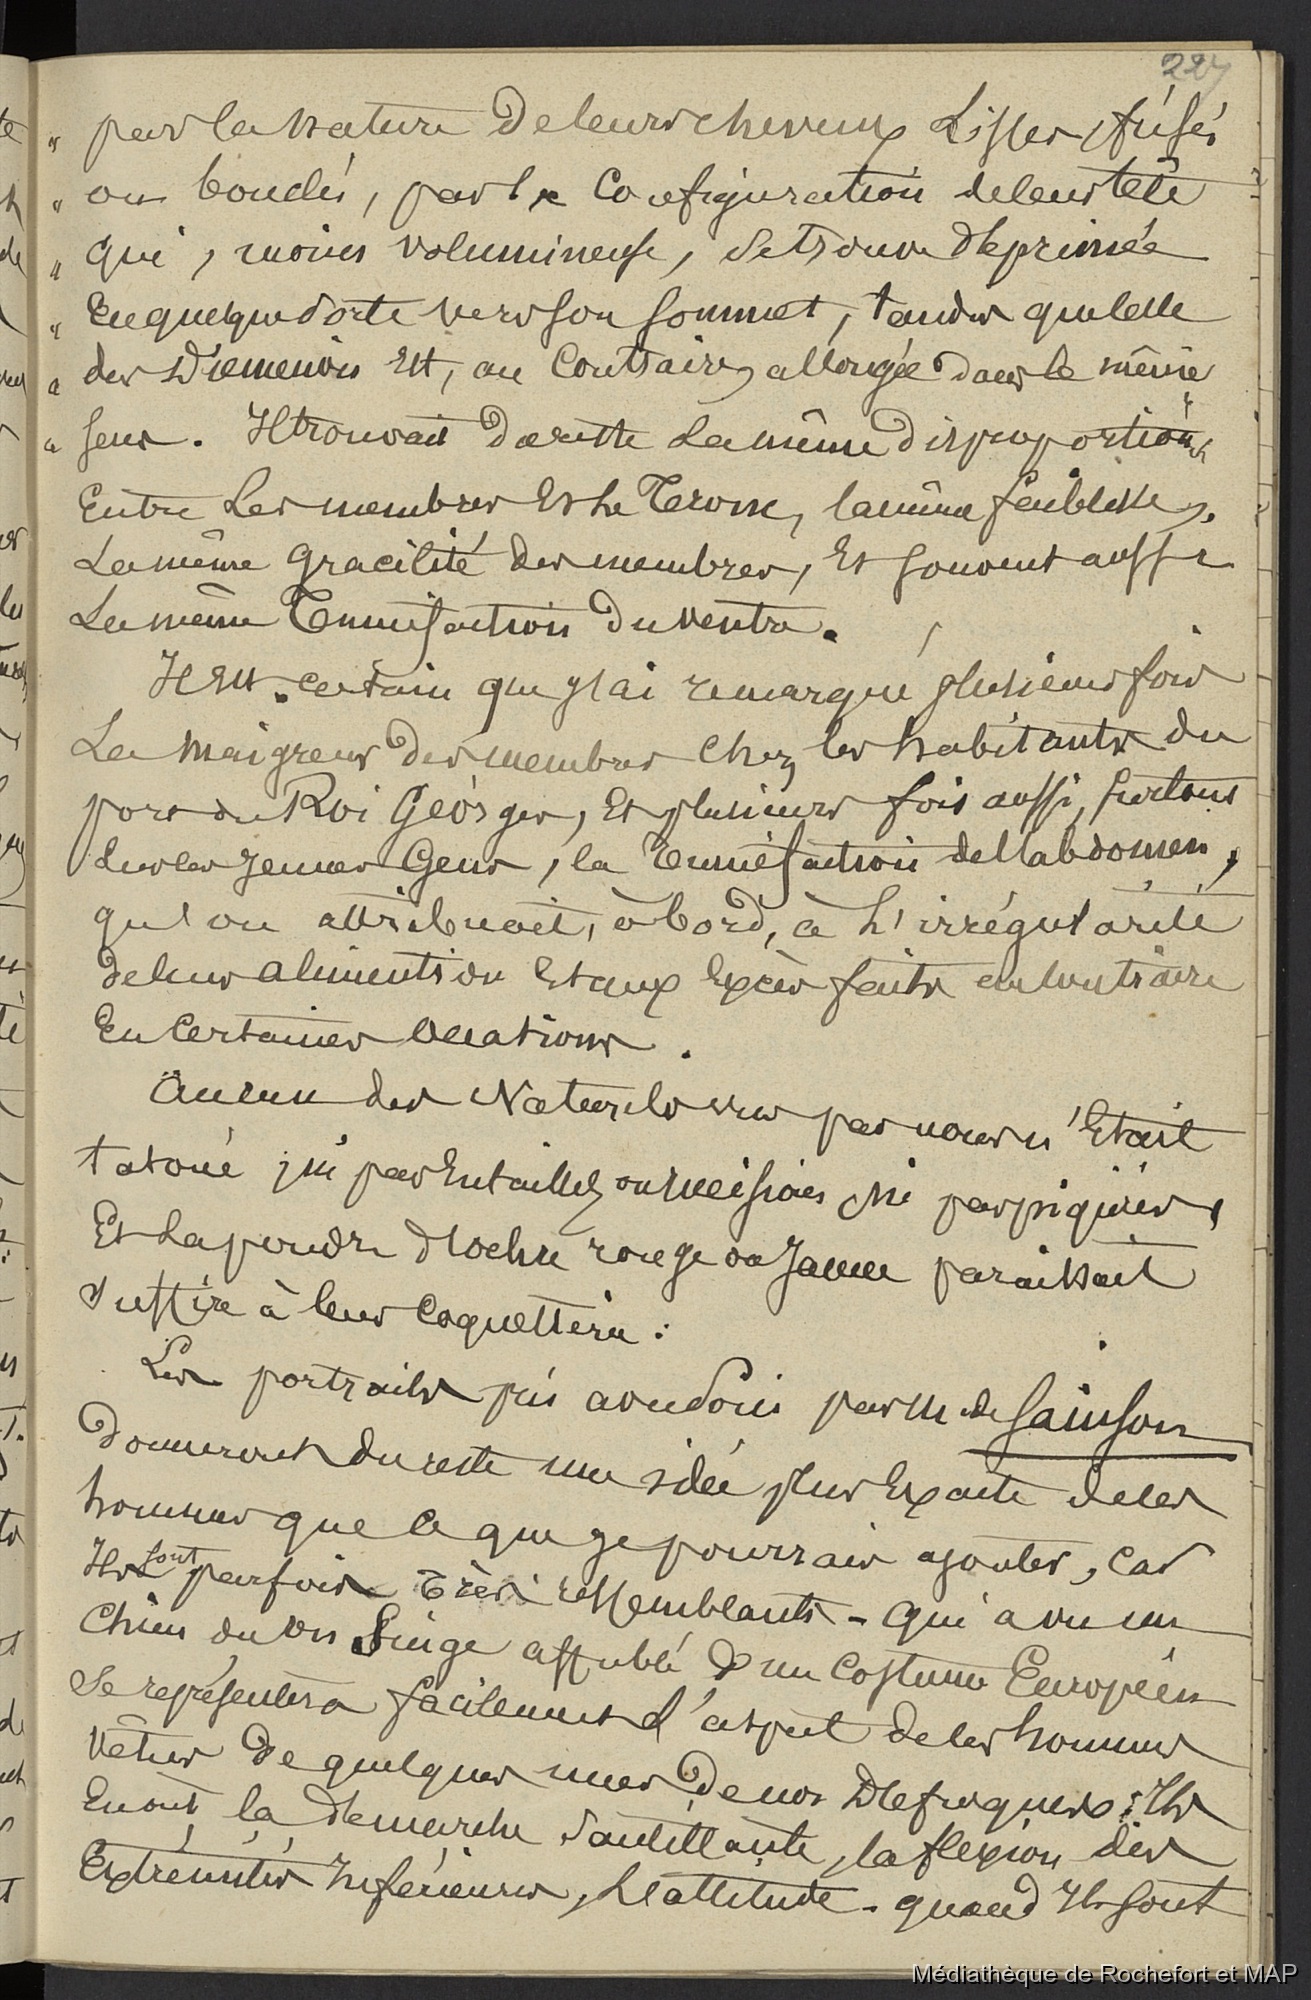 227
" par la nature de leurs cheveux lisses, frisés
" ou bouclés, par la configuration de leur tête
" qui, moins volumineuse, se trouve déprimée
" en quelque sorte vers son sommet, tandis que celle
" des Diemenois est, au contraire, allongée dans le même
" sens. " Il trouvait du reste la même disproportion
entre les membres et le tronc, la même faiblesse,
la même gracilité des membres, et souvent aussi
la même tuméfaction du ventre.
Il est certain que j'ai remarqué plusieurs fois
la maigreur des membres chez les habitants du
port du Roi Georges, et plusieurs fois aussi, surtout
sur les jeunes gens, la tuméfaction de l'abdomen,
qu'on attribuait, à bord, à l'irrégularité
de leur alimentation et aux excès faits au contraire
en certaines occasions.
Aucun des Naturels vus par nous n'était
tatoué, ni par entailles ou incisions, ni par piqûres,
et la poudre d'ochre rouge ou jaune paraissait
suffire à leur coquetterie :
Les portraits pris avec soin par M. de Sainson
donneront du reste une idée plus exacte de ces
hommes que ce que je pourrais ajouter, car
ils sont parfois très ressemblants - qui a vu un
chien ou un singe affublé d'un costume Européen
se représentera facilement l'aspect de ces hommes
vêtus de quelques unes de nos défroques : Ils
en ont la démarche sautillante, la flexion des
extrémités inférieures, l'attitude - quand ils sont
Médiathèque de Rochefort et MAP